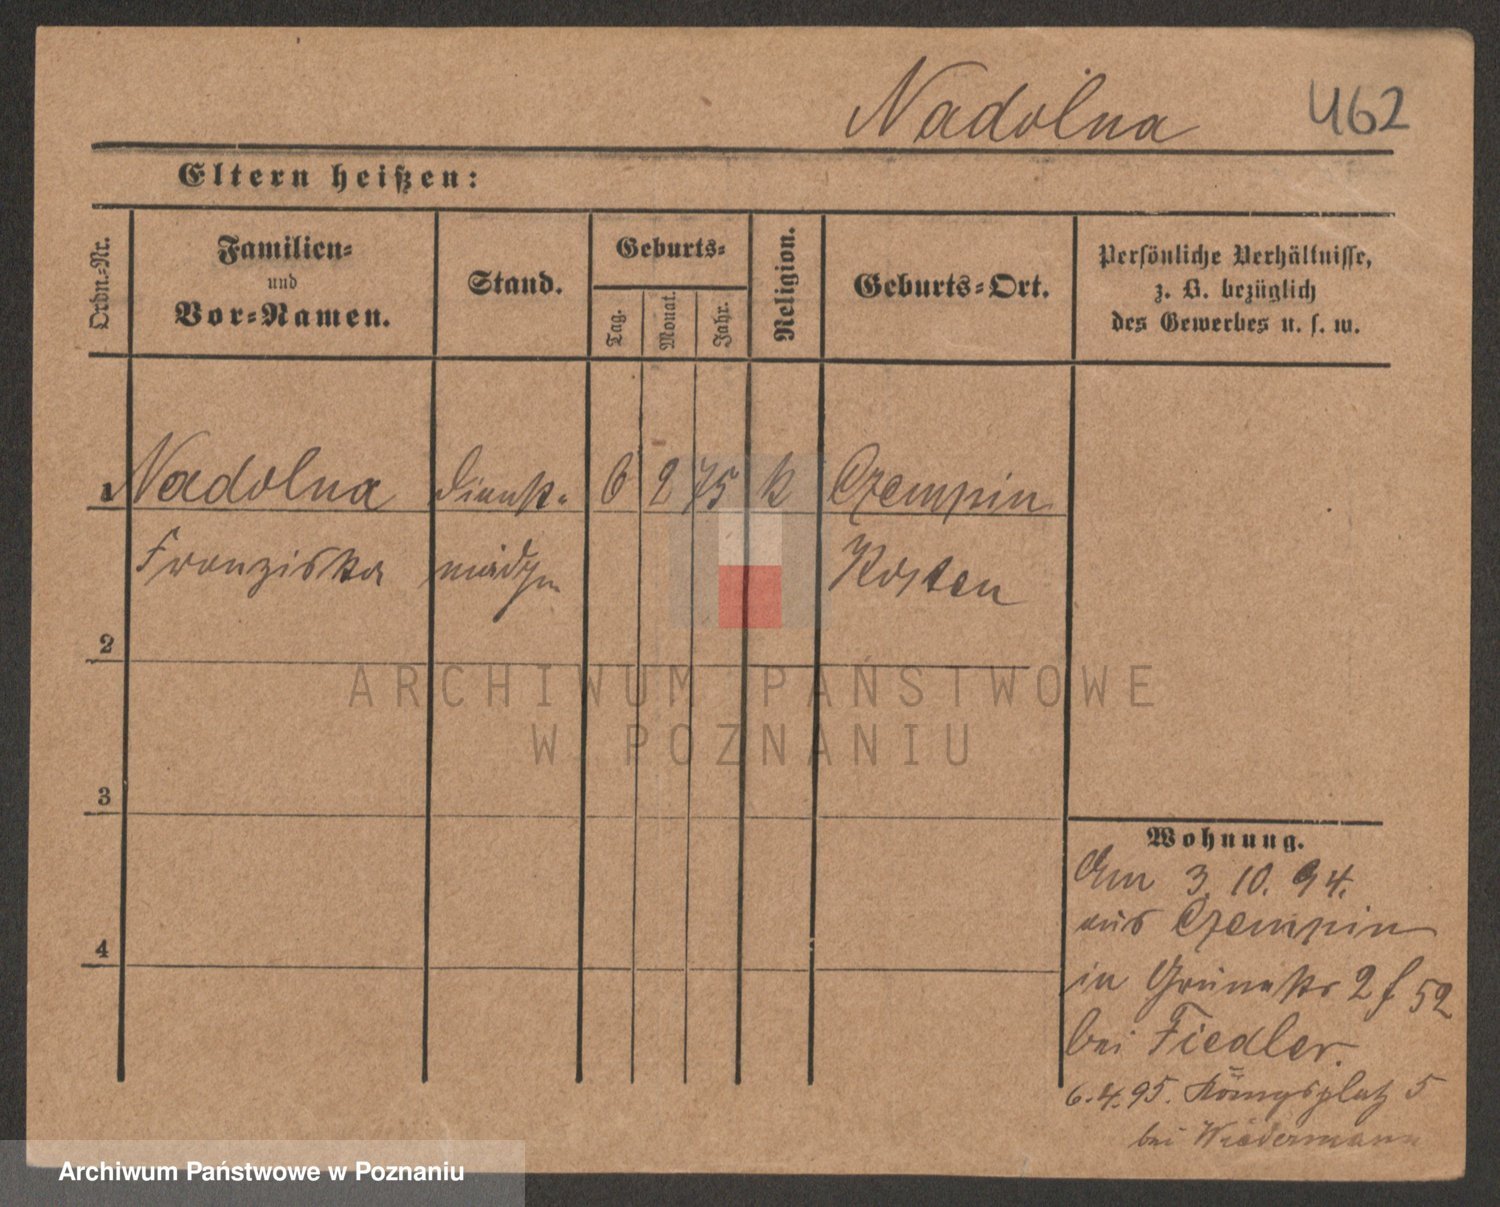 Nadolna 462
Eltern heißen:
Ordn.-Nr.
Familien-
und
Vor-Namen.
Stand.
Geburts-
Tag.
Monat.
Jahr.
Religion.
Geburts-Ort.
Persönliche Verhältnisse,
z. B. bezüglich
des Gewerbes u. s. w.
1 Nadolna Dienst- 6 2 75 k Czempin
Franziska mädchen Kosten
2
3
4
Wohnung.
Am 3. 10. 94.
aus Czempin
in Grünestr 2 f 52
bei Fiedler.
6.4.95. Königsplatz 5
bei Wiedermann
ARCHIWUM PAŃSTWOWE
W POZNANIU
Archiwum Państwowe w Poznaniu